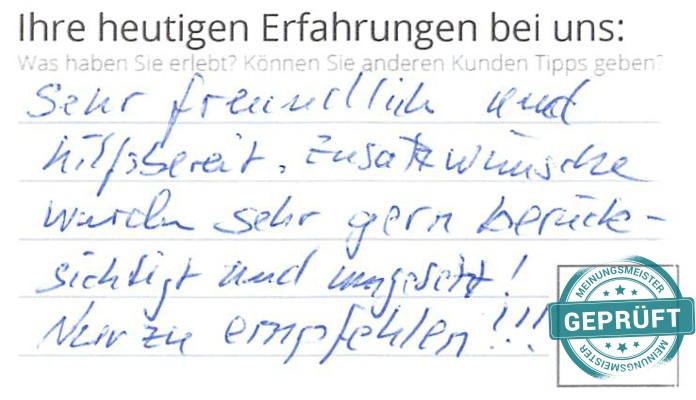 Ihre heutigen Erfahrungen bei uns:
Was haben Sie erlebt? Können Sie anderen Kunden Tipps geben?
Sehr freundlich und
hilfsbereit, Zusatzwünsche
wurden sehr gern berück-
sichtigt und umgesetzt!
Nur zu empfehlen!!!
MEINUNGSMEISTER
GEPRÜFT
MEINUNGSMEISTER